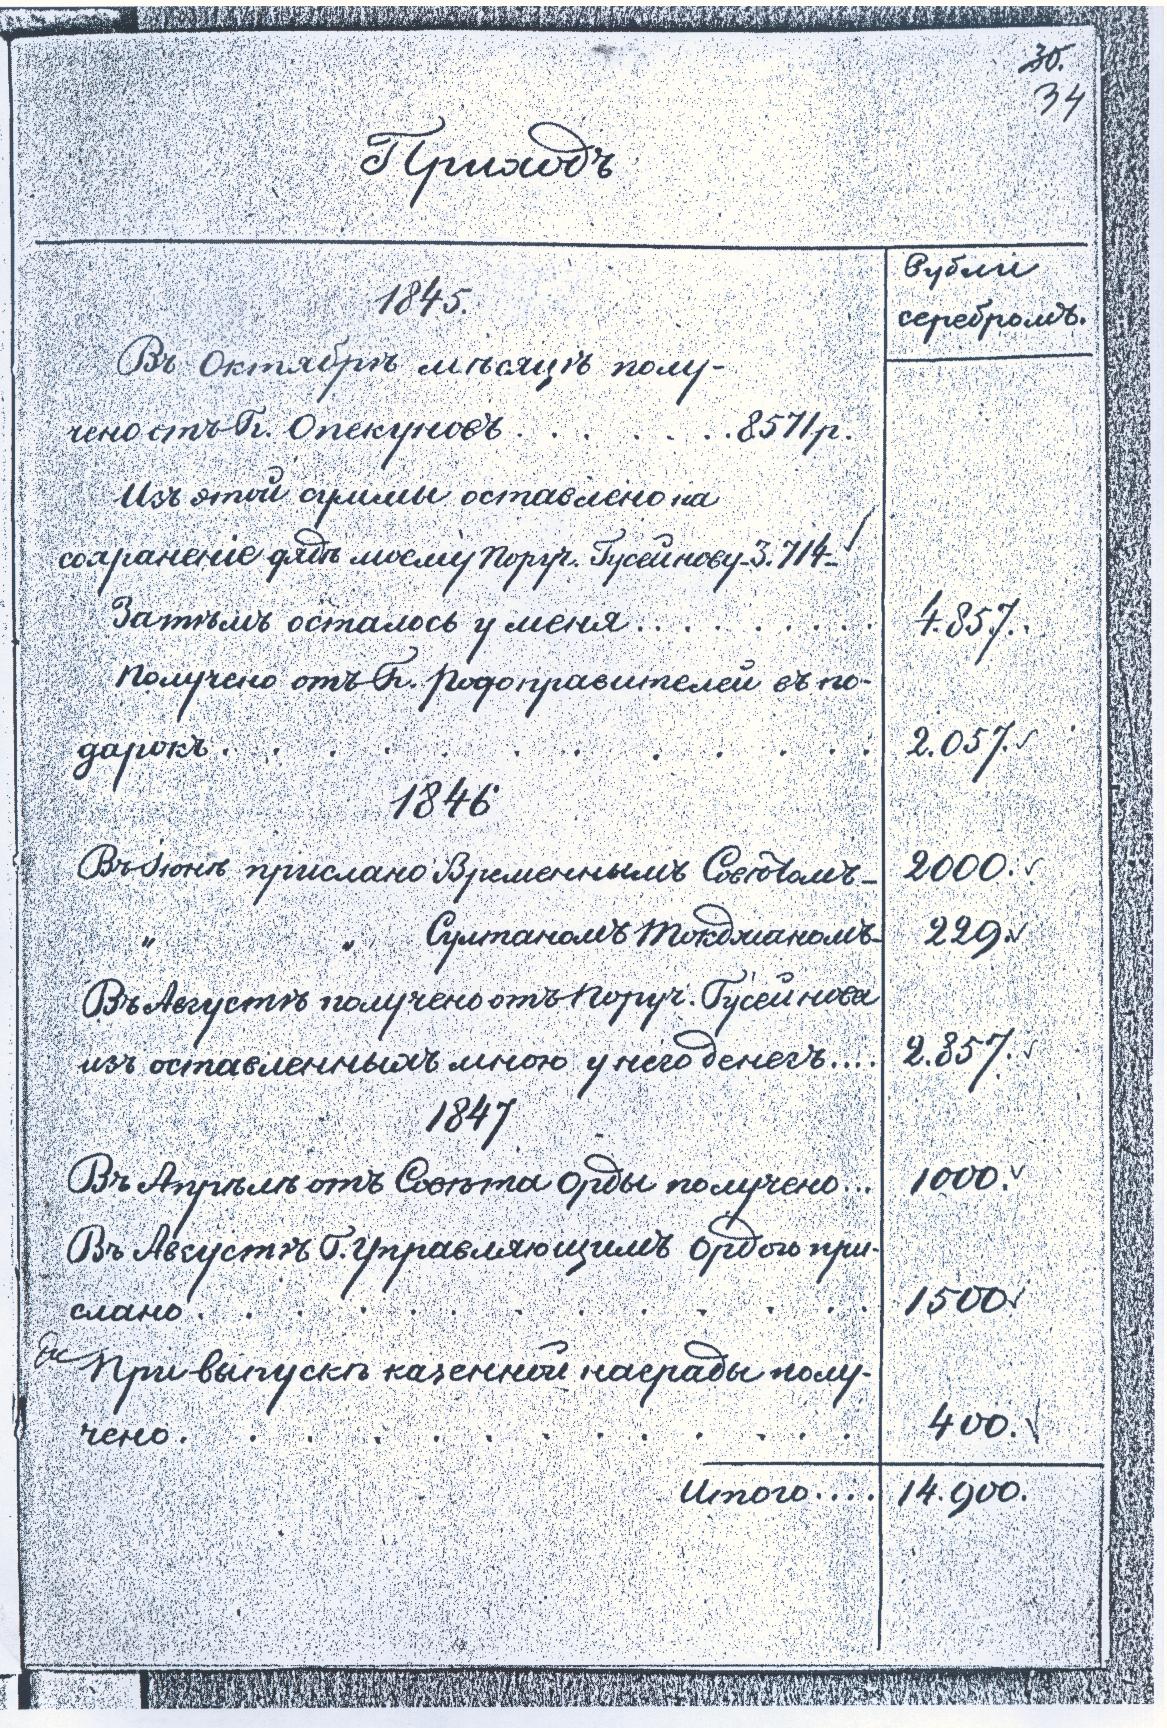 30.
34
Приходъ
Рубли
серебромъ.
1845.
Въ Октябрѣ мѣсяцѣ полу-
чено отъ Гг. Опекуновъ . . . . . . . 8571 р.
Изъ этой суммы оставлено на
сохраненіе дядѣ моему Поруч. Гусейнову - 3.714 -
Затѣмъ осталось у меня . . . . . . . . . 4.857.
Получено отъ Гг. Родоправителей въ по-
дарокъ . . . . . . . . . . . 2.057.
1846
Въ Іюнѣ прислано Временнымъ Совѣтомъ - 2000.
" " Султаномъ Токджаномъ - 229.
Въ Августѣ получено отъ Поруч. Гусейнова
изъ оставленныхъ мною у него денегъ .... 2.857.
1847
Въ Апрѣлѣ отъ Совѣта Орды получено ... 1000.
Въ Августѣ Г. Управляющимъ Ордою при-
слано . . . . . . . . . . . 1500
При выпускѣ казенной награды полу-
чено . . . . . . . . . . . 400.
Итого .... 14.900.